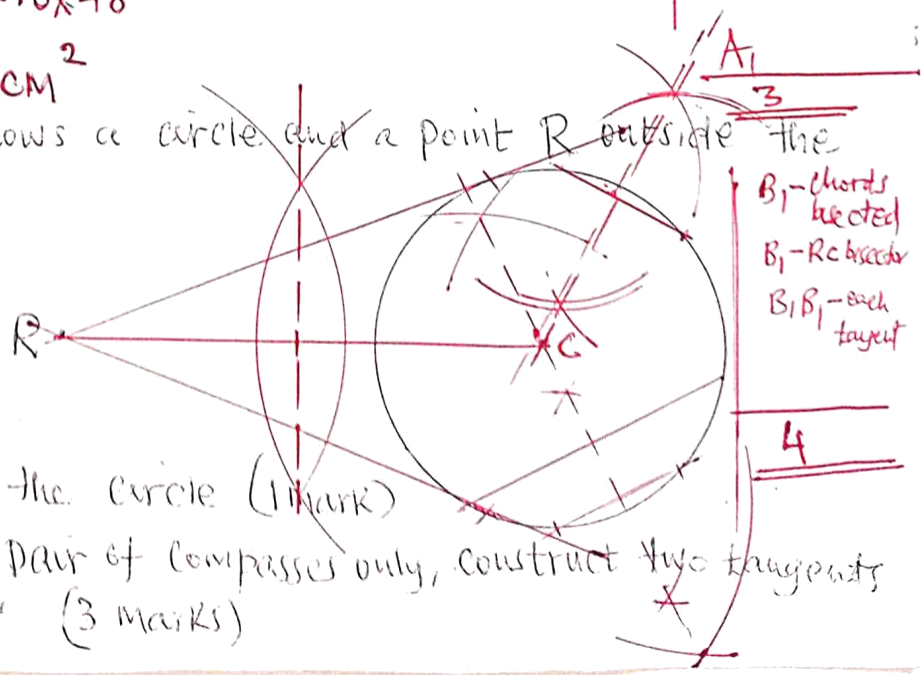 CM²
A₁
3
ows a circle and a point R outside the
B₁-Chords
bisected
B₁-RC bisector
B₁B₁-each
tangent
R
C
4
the circle (1 Mark)
pair of compasses only, construct two tangents
(3 Marks)